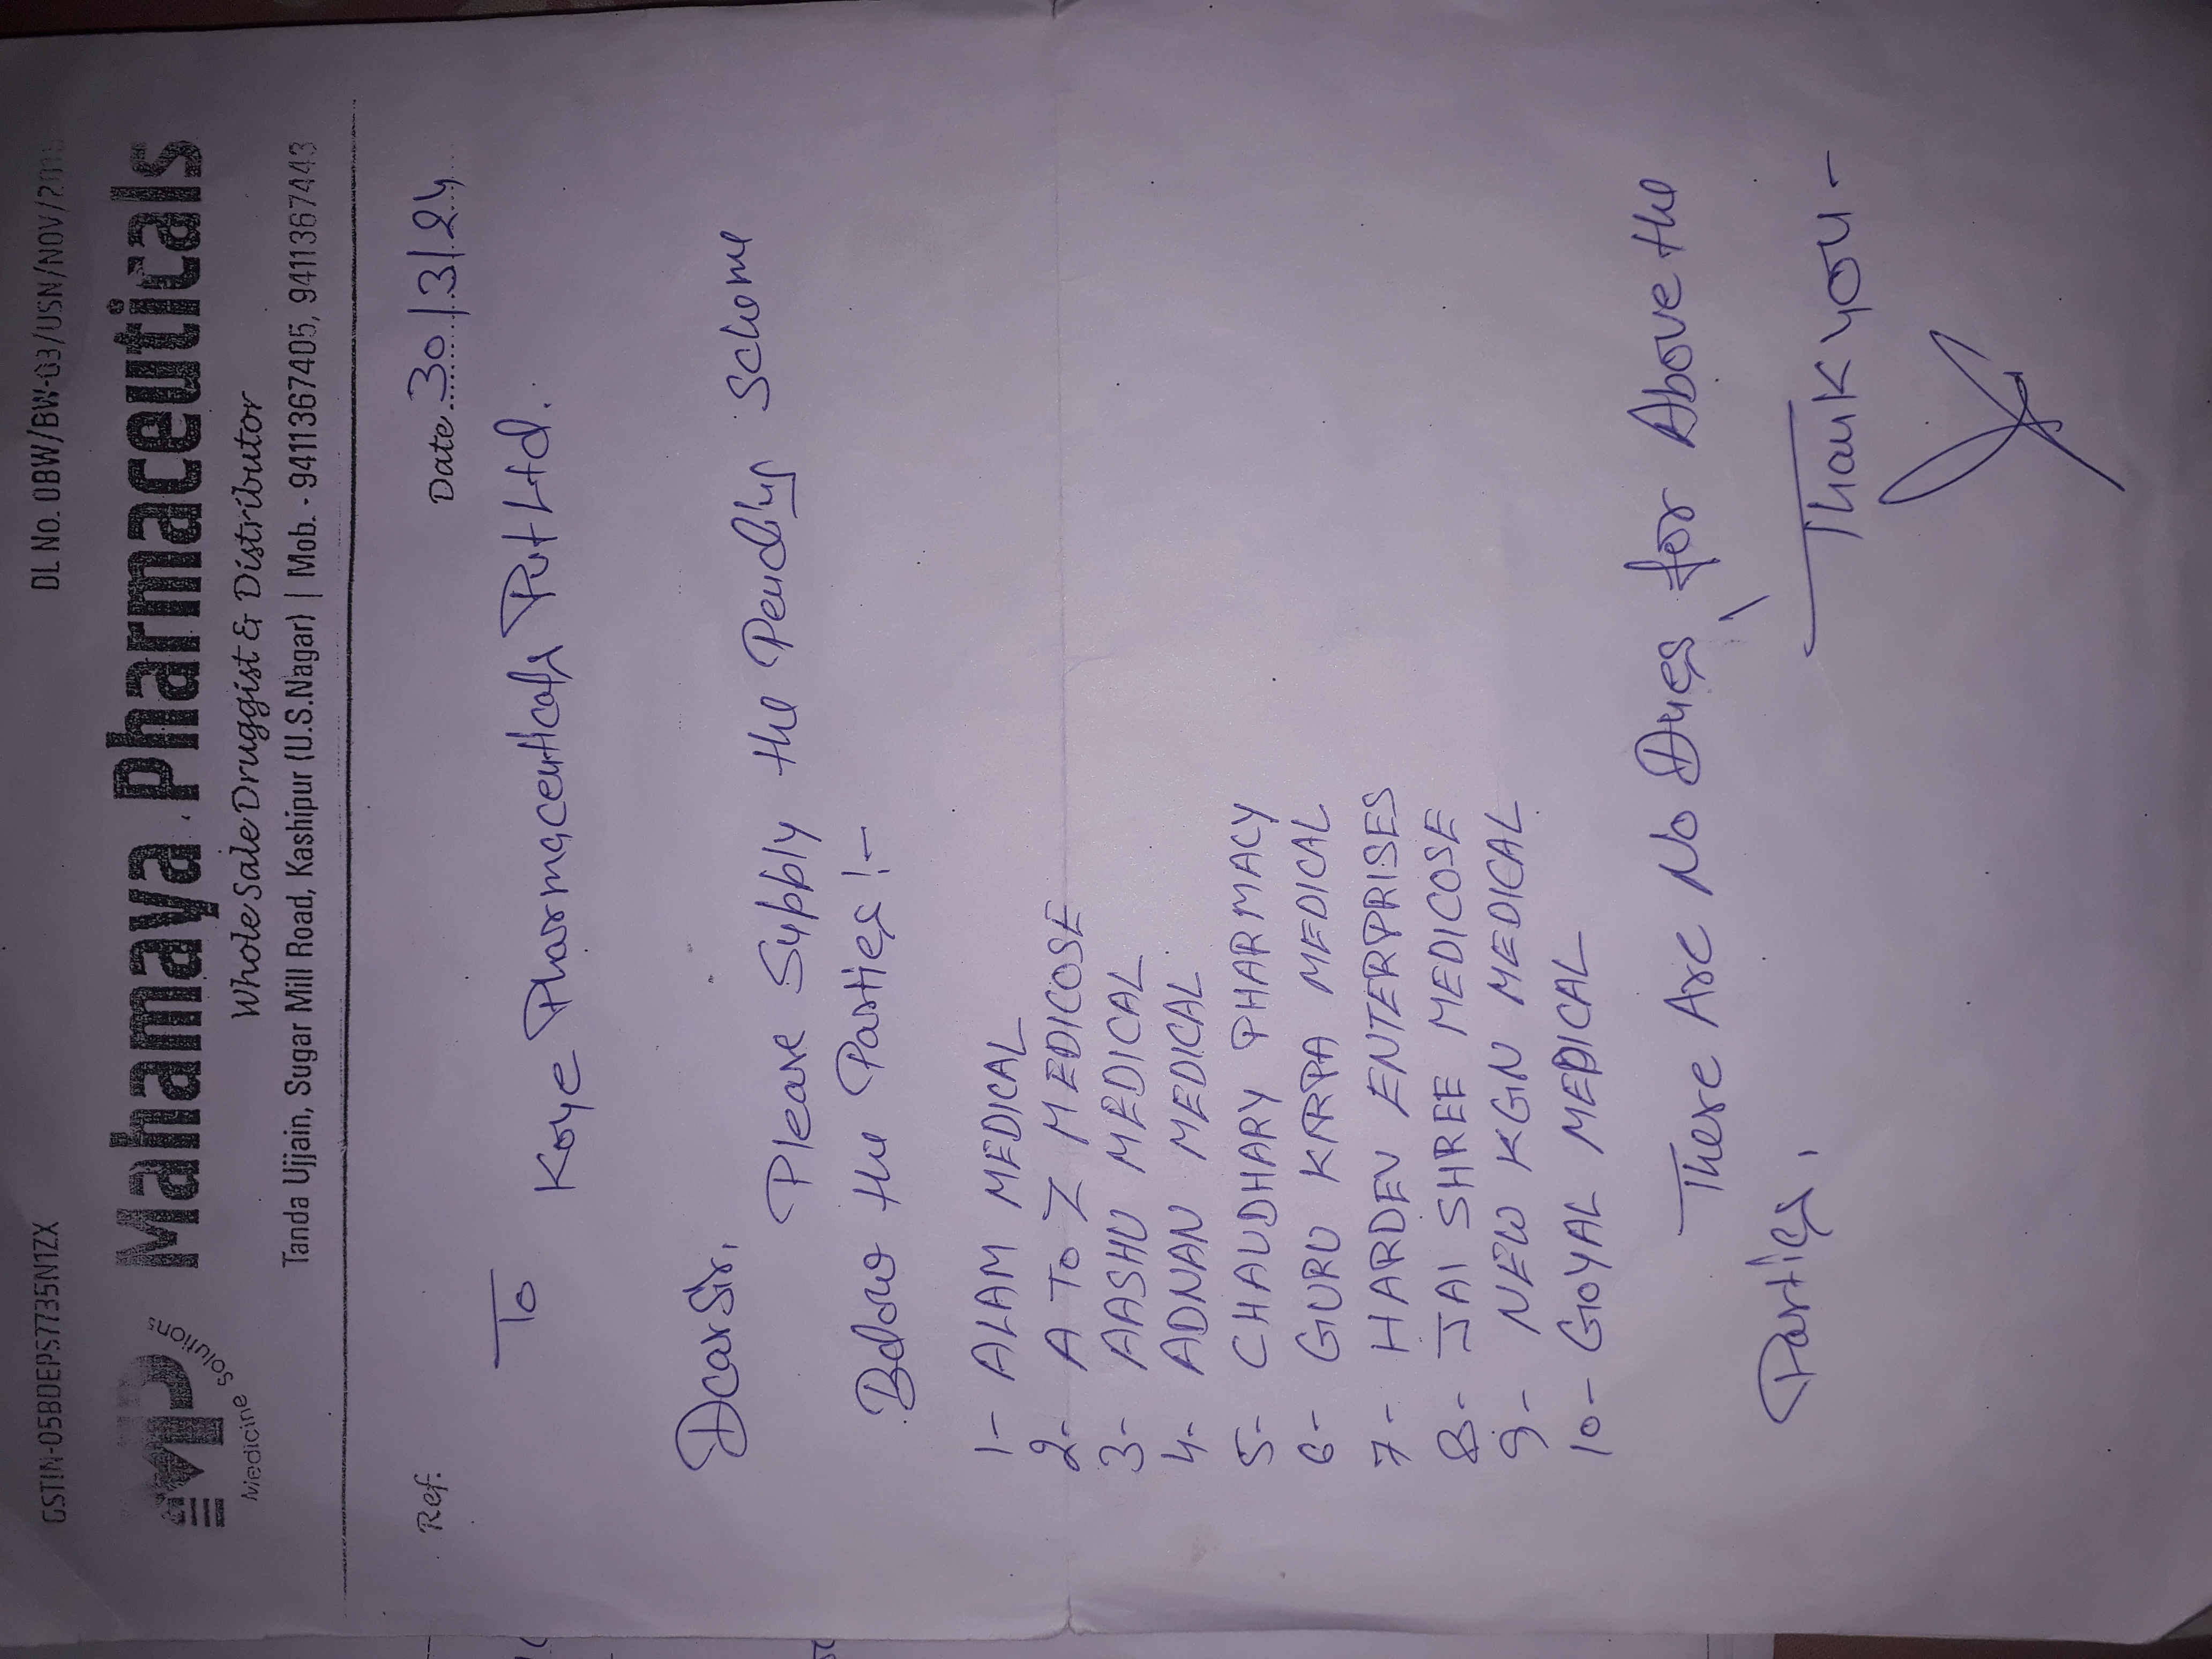 GSTIN-05BDEPS7735N1ZX DL No. OBW/BW-03/USN/NOV/
MP
Medicine Solutions
Mahamaya Pharmaceuticals
Whole Sale Druggist & Distributor
Tanda Ujjain, Sugar Mill Road, Kashipur (U.S.Nagar) | Mob. - 9411367405, 9411367443
Ref. Date 30/3/24
To
Koye Pharmaceuticals Pvt Ltd.
Dear Sir,
Please Supply the Pending Scheme
Below the Parties :-
1- ALAM MEDICAL
2- A To Z MEDICOSE
3- AASHU MEDICAL
4- ADNAN MEDICAL
5- CHAUDHARY PHARMACY
6- GURU KARPA MEDICAL
7- HARDEV ENTERPRISES
8- JAI SHREE MEDICOSE
9- NEW KGN MEDICAL
10- GOYAL MEDICAL
There Are No Dues, for Above the
Parties.
Thank you -